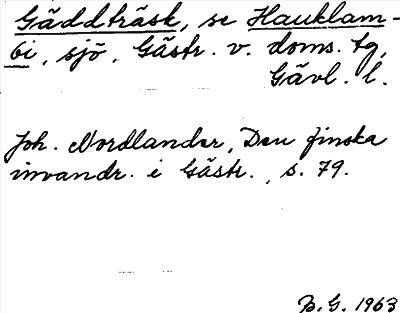 Gäddträsk, se Hauklam-
bi, sjö, Gästr. v. doms. tg,
Gävl. l.
Joh. Nordlander, Den finska
invandr. i Gästr., s. 79.
B. G. 1963